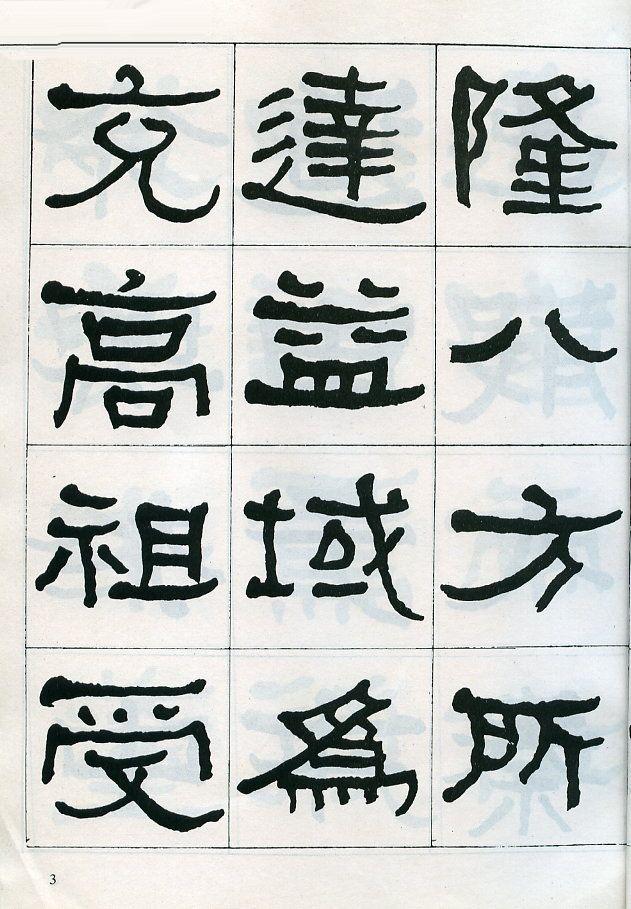 隆八方所
達益域為
充高祖受
3